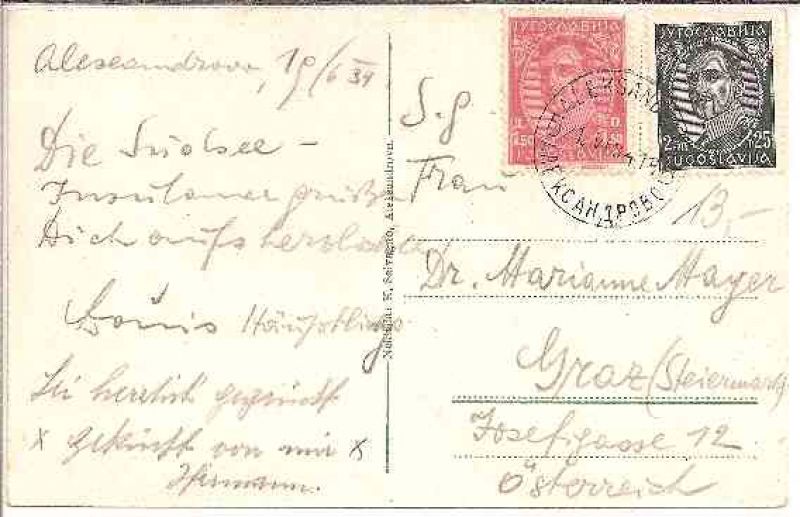 Alexandrovo, 19/6 34
Die Südsee –
Insulaner grüßen
Dich aufs herzlichste!
Louis Häuptling
Sei herzlich gegrüßt
x geküsst von mir x
Hermann.
Verlag: K. Salvagno, Alexandrovo.
ЈУГОСЛАВИЈА
1.50
.50
JUGOSLAVIJA
ЈУГОСЛАВИЈА
25
JUGOSLAVIJA
ALEKSAND
АЛЕКСАНДРОВО
S. g.
Frau
13,–
Dr. Marianne Mayer
Graz (Steiermark)
Josefigasse 12
Österreich